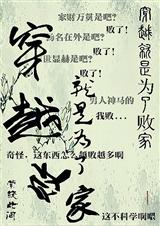 穿越就是为了败家
家财万贯是吧?
败了!
名在外是吧?
败了!
世显赫是吧?
败了!
男人神马的
我败...
奇怪，这东西怎么越败越多啊
这不科学啊喂
穿越
就是为了
败家